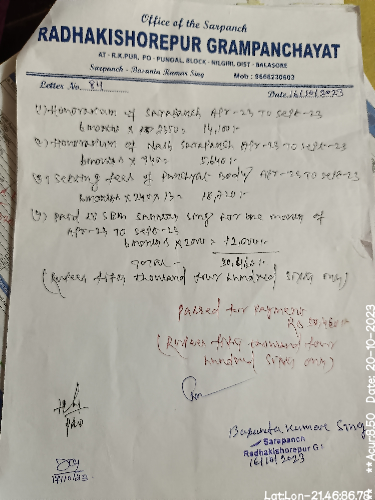 Office of the Sarpanch
RADHAKISHOREPUR GRAMPANCHAYAT
AT - R.K.PUR, PO - PUNDAL, BLOCK - NILGIRI, DIST - BALASORE
Sarpanch - Basanta Kumar Sing Mob : 9668230603
Letter No. 84 Date. 16/10/2023
1) Honorarium of Sarapanch Apr-23 TO Sept-23
6 months x 2350 = 14,100/-
2) Honorarium of Naib Sarapanch Apr-23 TO Sept-23
6 months x 940 = 5,640/-
3) Seeting fees of Panchyat Body Apr-23 TO Sept-23
6 months x 240 x 13 = 18,720/-
4) paid to Sing for one month of
Apr-23 TO Sept-23
6 months x 2000 = 12,000/-
TOTAL -
(Rupees fifty thousand four hundred sixty only)
Passed for payment
Rs
(Rupees fifty thousand four
hundred sixty only)
PEO
Basanta Kumar Sing
Sarapanch
Radhakishorepur G
16/10/2023
**Acur8.50 Date, 20-10-2023
LatLon-21.46:86.78